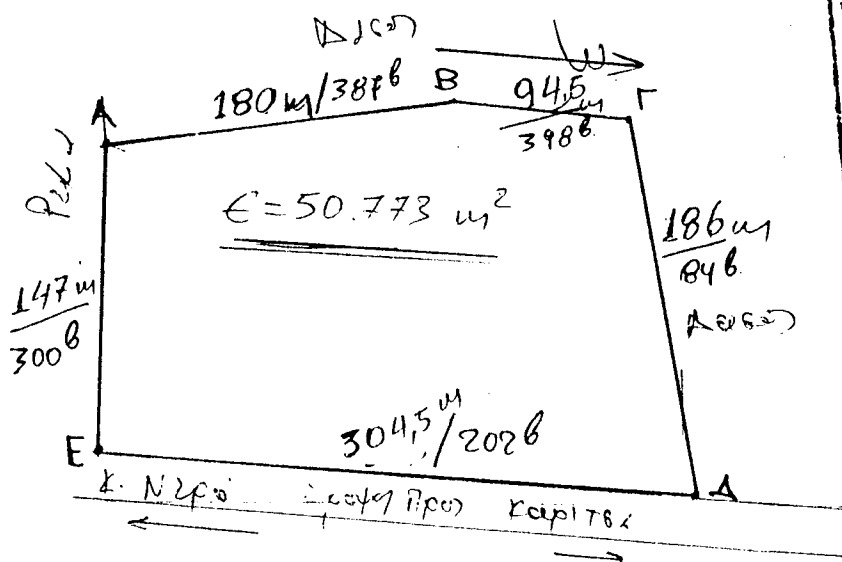 Δάσος
180 m/387β
B
94,5 m
398β
Γ
A
Ρέμα
Ε = 50.773 m²
186 m
84β
Δάσος
147 m
300β
304,5 m/202β
E
Δ
Κ. Νερό προς